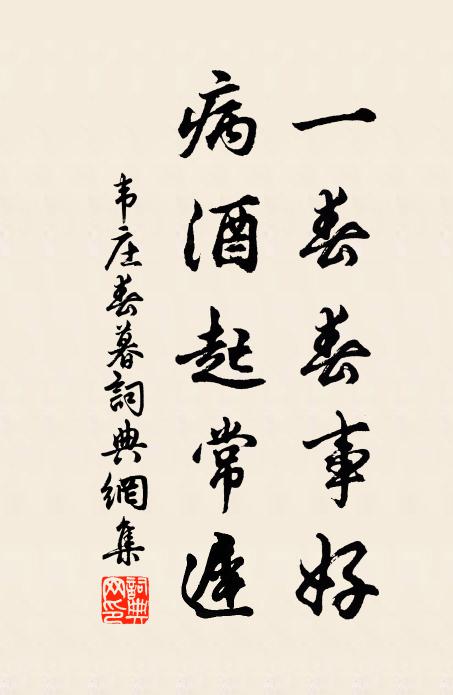 一春春事好
病酒起常遲
韦庄春暮詞典網集
詞典网印